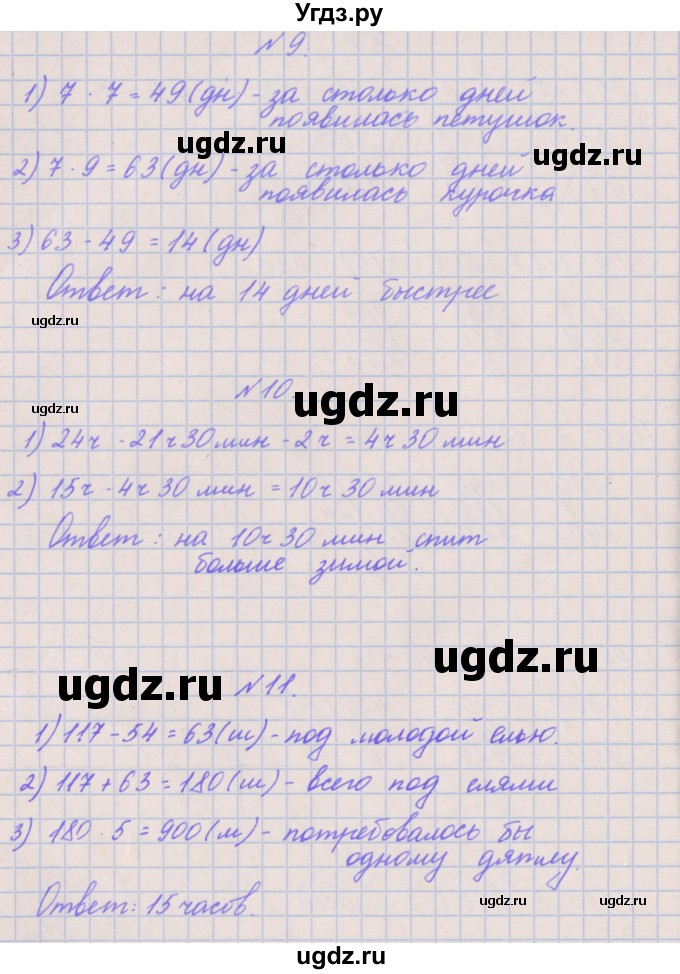 Угдз.ру
№9.
1) 7 · 7 = 49 (дн) - за столько дней
появилась петушок.
ugdz.ru
ugdz.ru
2) 7 · 9 = 63 (дн) - за столько дней
появилась курочка
3) 63 - 49 = 14 (дн)
Ответ: на 14 дней быстрее
ugdz.ru
№10.
ugdz.ru
ugdz.ru
1) 24ч - 21ч 30 мин - 2ч = 4ч 30 мин
2) 15ч - 4ч 30 мин = 10ч 30 мин
Ответ: на 10ч 30 мин спит
больше зимой.
ugdz.ru
ugdz.ru
№11.
1) 117 - 54 = 63 (ш) - под молодой елью.
2) 117 + 63 = 180 (ш) - всего под елями
3) 180 · 5 = 900 (м) - потребовалось бы
одному дятлу.
Ответ: 15 часов.
ugdz.ru
ugdz.ru
ugdz.ru